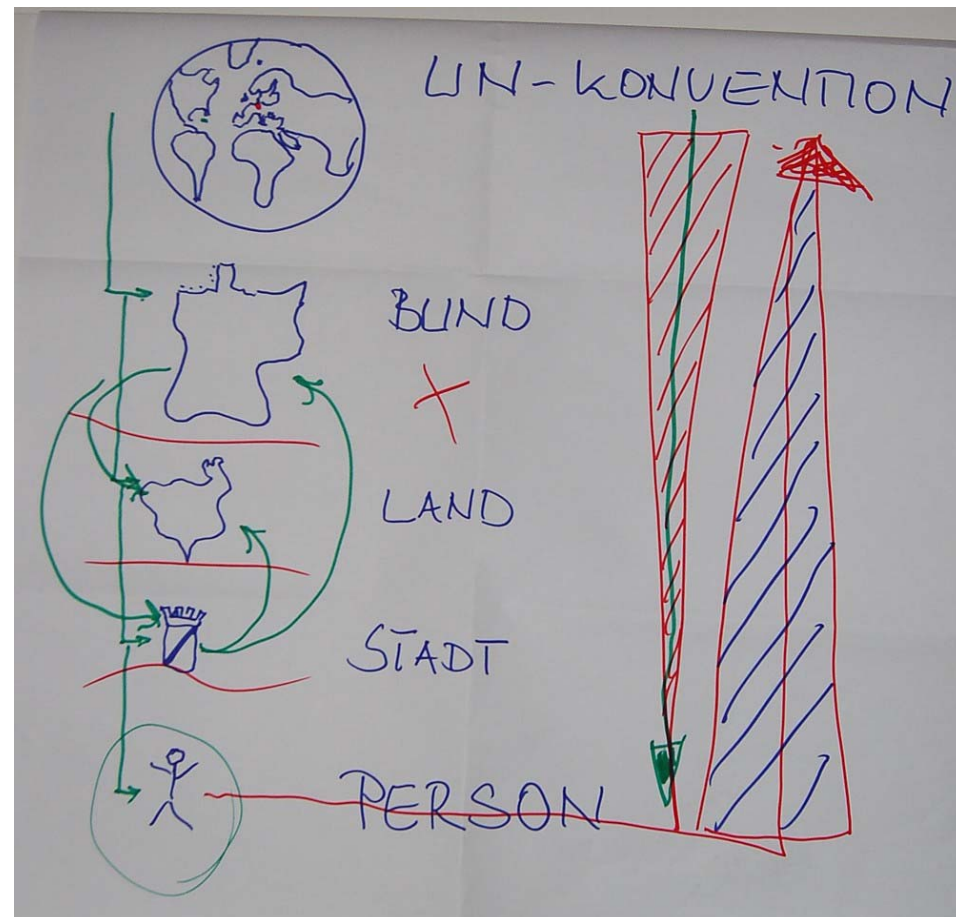 UN-KONVENTION
BUND
LAND
STADT
PERSON